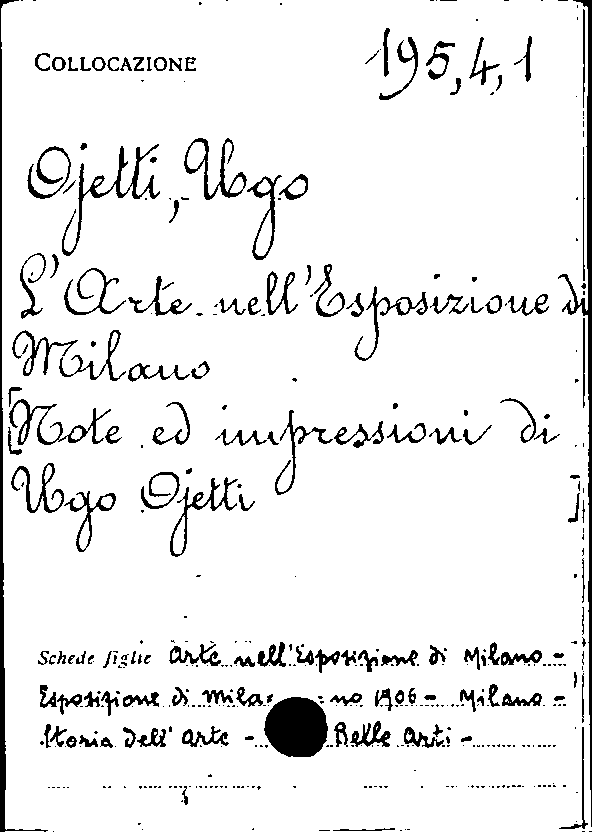 COLLOCAZIONE 195,4,1
Ojetti, Ugo
L'Arte nell'Esposizione di
Milano
[Note ed impressioni di
Ugo Ojetti ]
Schede figlie Arte nell'Esposizione di Milano -
Esposizione di Milano 1906 - Milano -
Storia dell'Arte - Belle Arti -